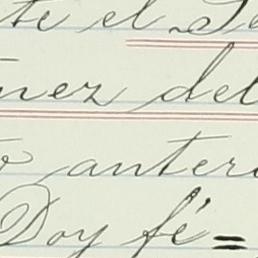 te el Se
nez del
o anteri
Doy fé=